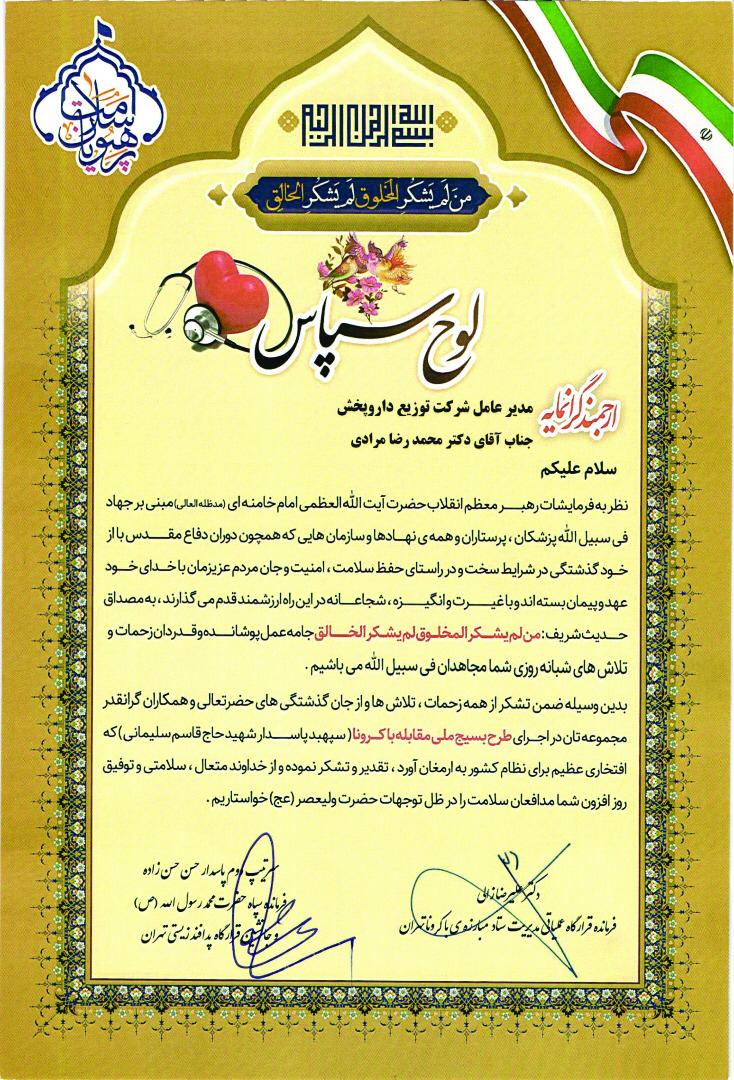 رهپویان سلامت
بسم الله الرحمن الرحیم
من لم یشکر المخلوق لم یشکر الخالق
لوح سپاس
ارجمند گرانمایه
مدیر عامل شرکت توزیع داروپخش
جناب آقای دکتر محمد رضا مرادی
سلام علیکم
نظر به فرمایشات رهبر معظم انقلاب حضرت آیت الله العظمی امام خامنه ای (مدظله العالی) مبنی بر جهاد
فی سبیل الله پزشکان ، پرستاران و همه ی نهادها و سازمان هایی که همچون دوران دفاع مقدس با از
خود گذشتگی در شرایط سخت و در راستای حفظ سلامت ، امنیت و جان مردم عزیزمان با خدای خود
عهد و پیمان بسته اند و با غیرت و انگیزه ، شجاعانه در این راه ارزشمند قدم می گذارند ، به مصداق
حدیث شریف : من لم یشکر المخلوق لم یشکر الخالق جامه عمل پوشانده و قدردان زحمات و
تلاش های شبانه روزی شما مجاهدان فی سبیل الله می باشیم .
بدین وسیله ضمن تشکر از همه زحمات ، تلاش ها و از جان گذشتگی های حضرتعالی و همکاران گرانقدر
مجموعه تان در اجرای طرح بسیج ملی مقابله با کرونا ( سپهبد پاسدار شهید حاج قاسم سلیمانی ) که
افتخاری عظیم برای نظام کشور به ارمغان آورد ، تقدیر و تشکر نموده و از خداوند متعال ، سلامتی و توفیق
روز افزون شما مدافعان سلامت را در ظل توجهات حضرت ولیعصر (عج) خواستاریم .
دکتر علیرضا زالی
فرمانده قرارگاه عملیاتی مدیریت ستاد مبارزه با کرونا تهران
سرتیپ دوم پاسدار حسن حسن زاده
فرمانده سپاه حضرت محمد رسول الله (ص)
و جانشین قرارگاه پدافند زیستی تهران